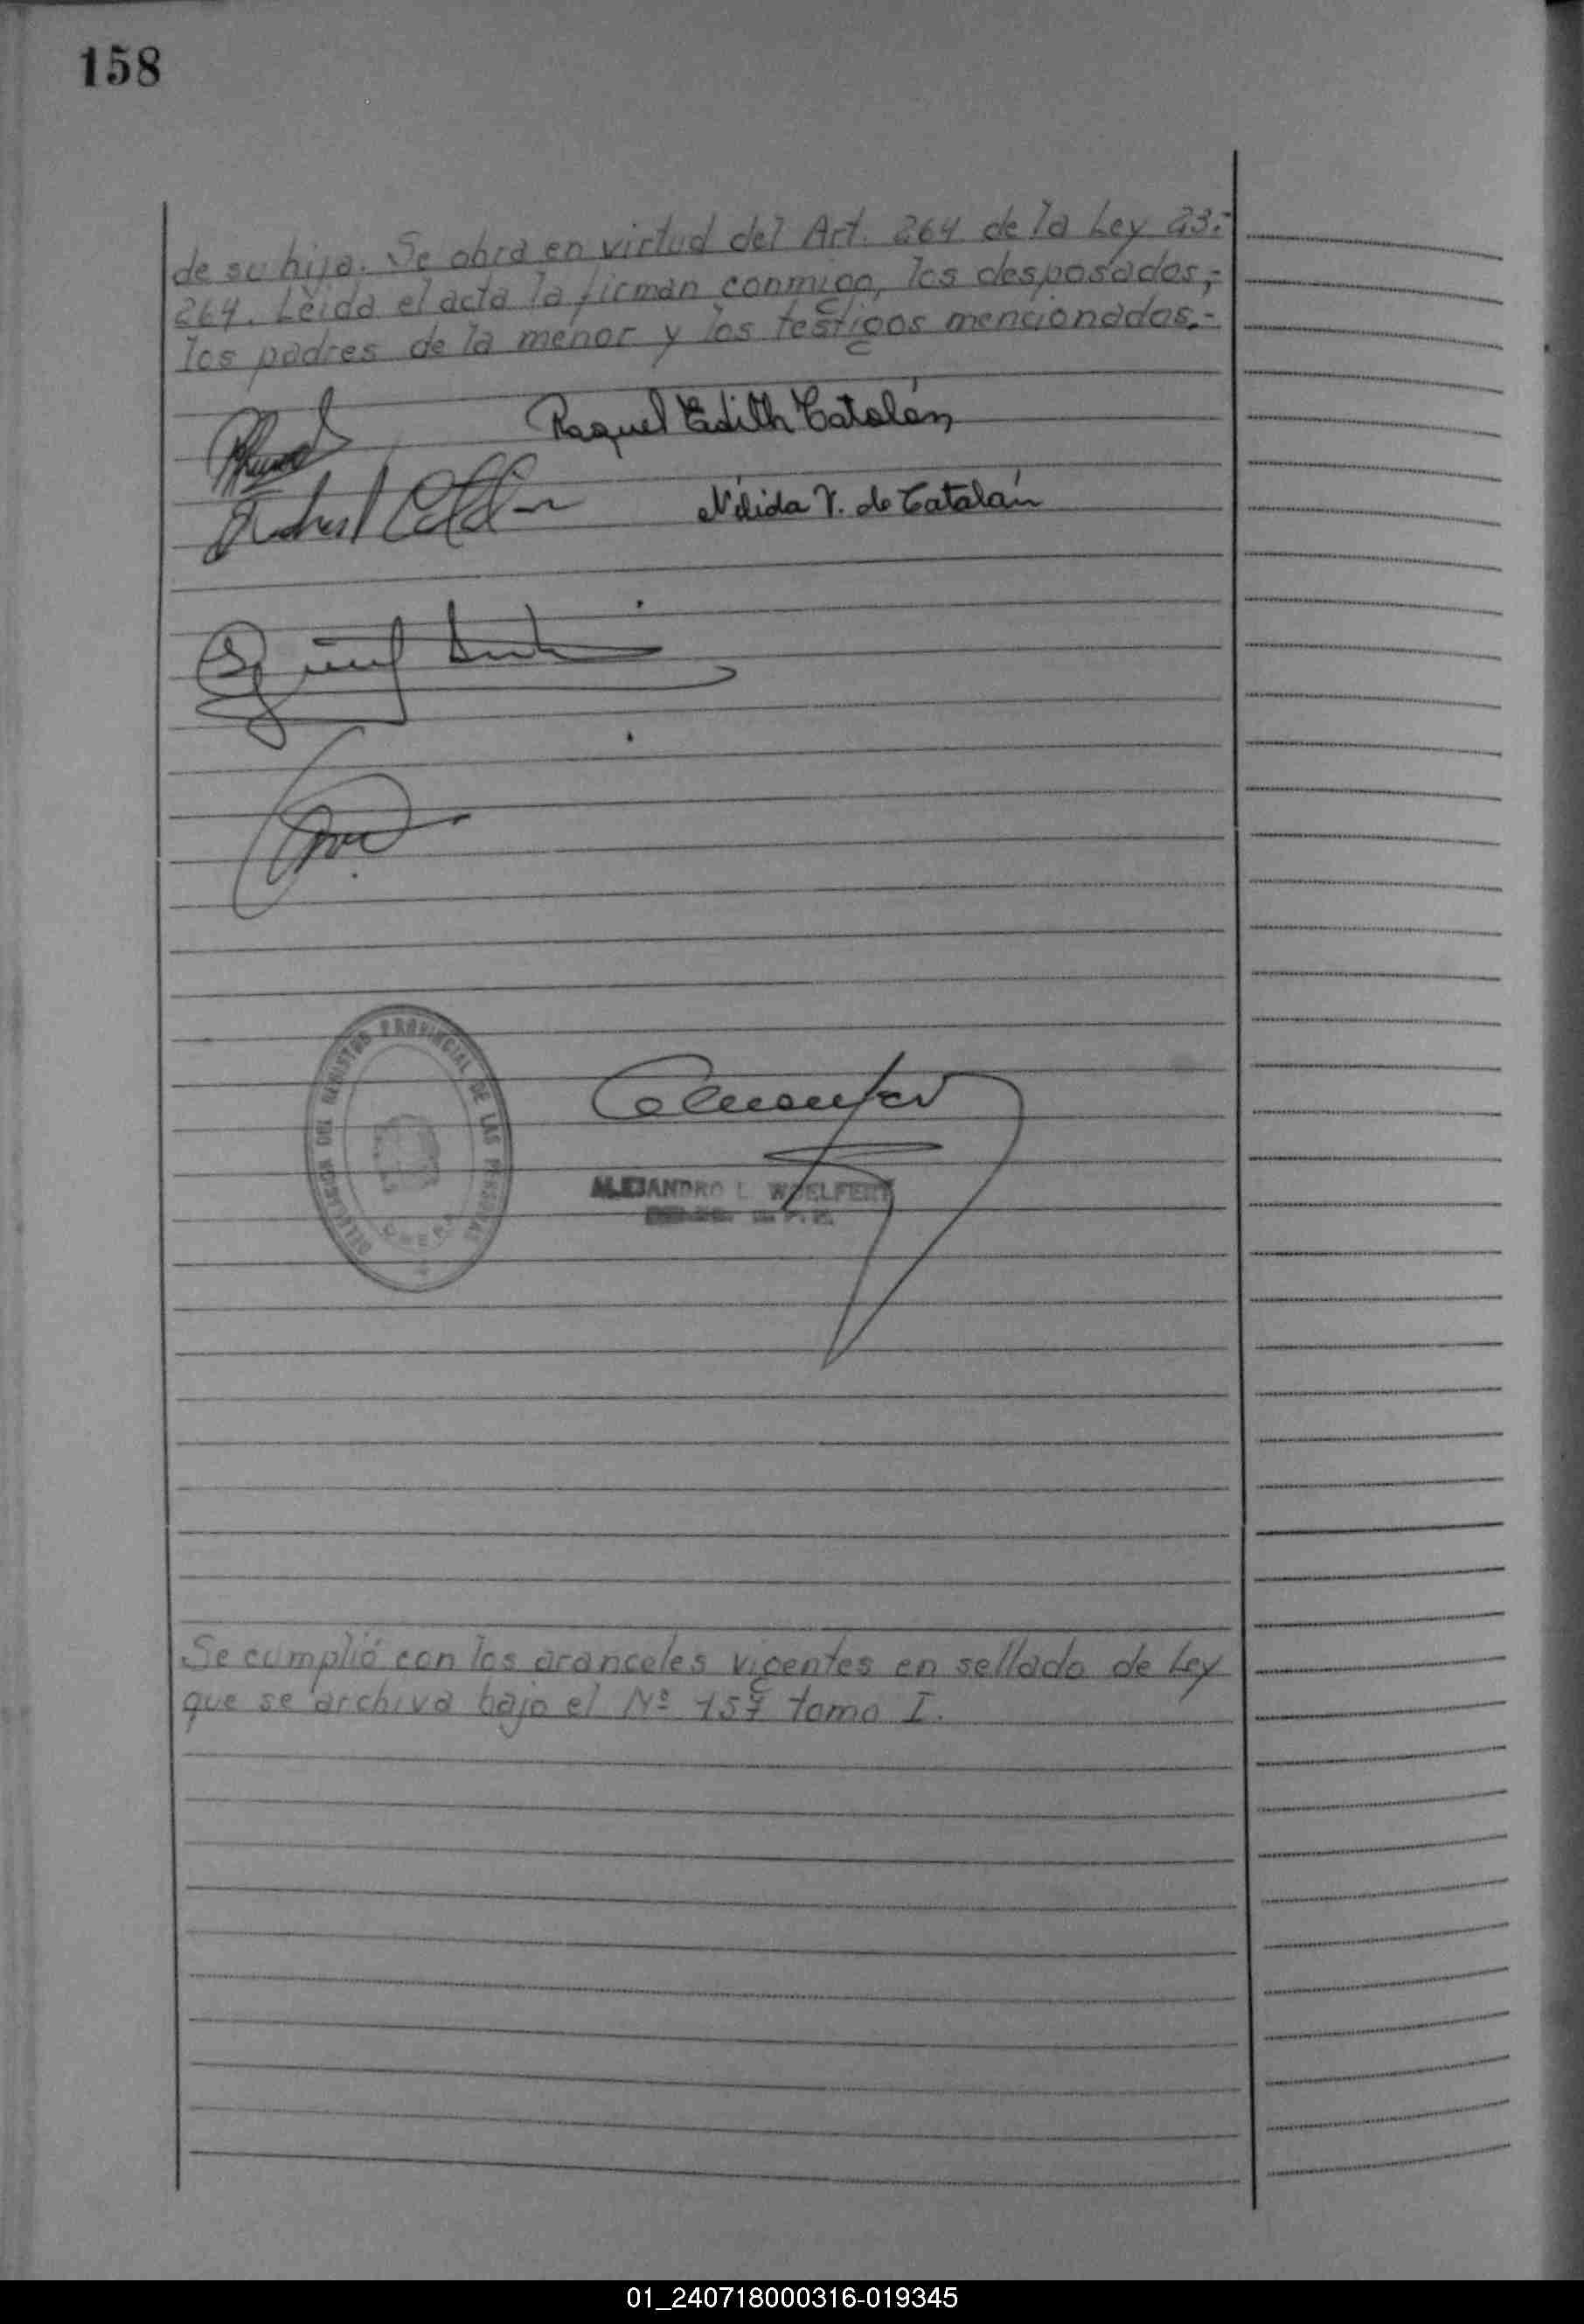 158
de su hija. Se obra en virtud del Art. 264 de la Ley 23.-
264. Leida el acta la firman conmigo, los desposados,-
los padres de la menor y los testigos mencionados.-
Raquel Edith Catalán
Nélida V. de Catalán
DELEGACION DEL REGISTRO PROVINCIAL DE LAS PERSONAS
ALEJANDRO L. WOELFERT
Se cumplió con los aranceles vigentes en sellado de Ley
que se archiva bajo el Nº 157 tomo I.
01_240718000316-019345